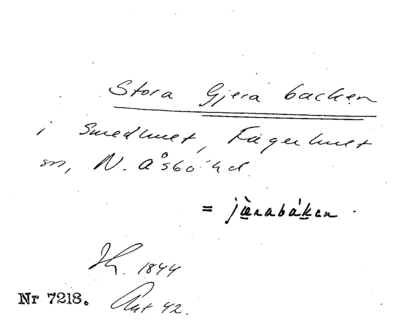 Stora Gjera backen
i Smedhult, Fagerhult
sn, N. Åsbo hd.
= jæ̀rabáken.
1844
Nr 7218. Ant 42.